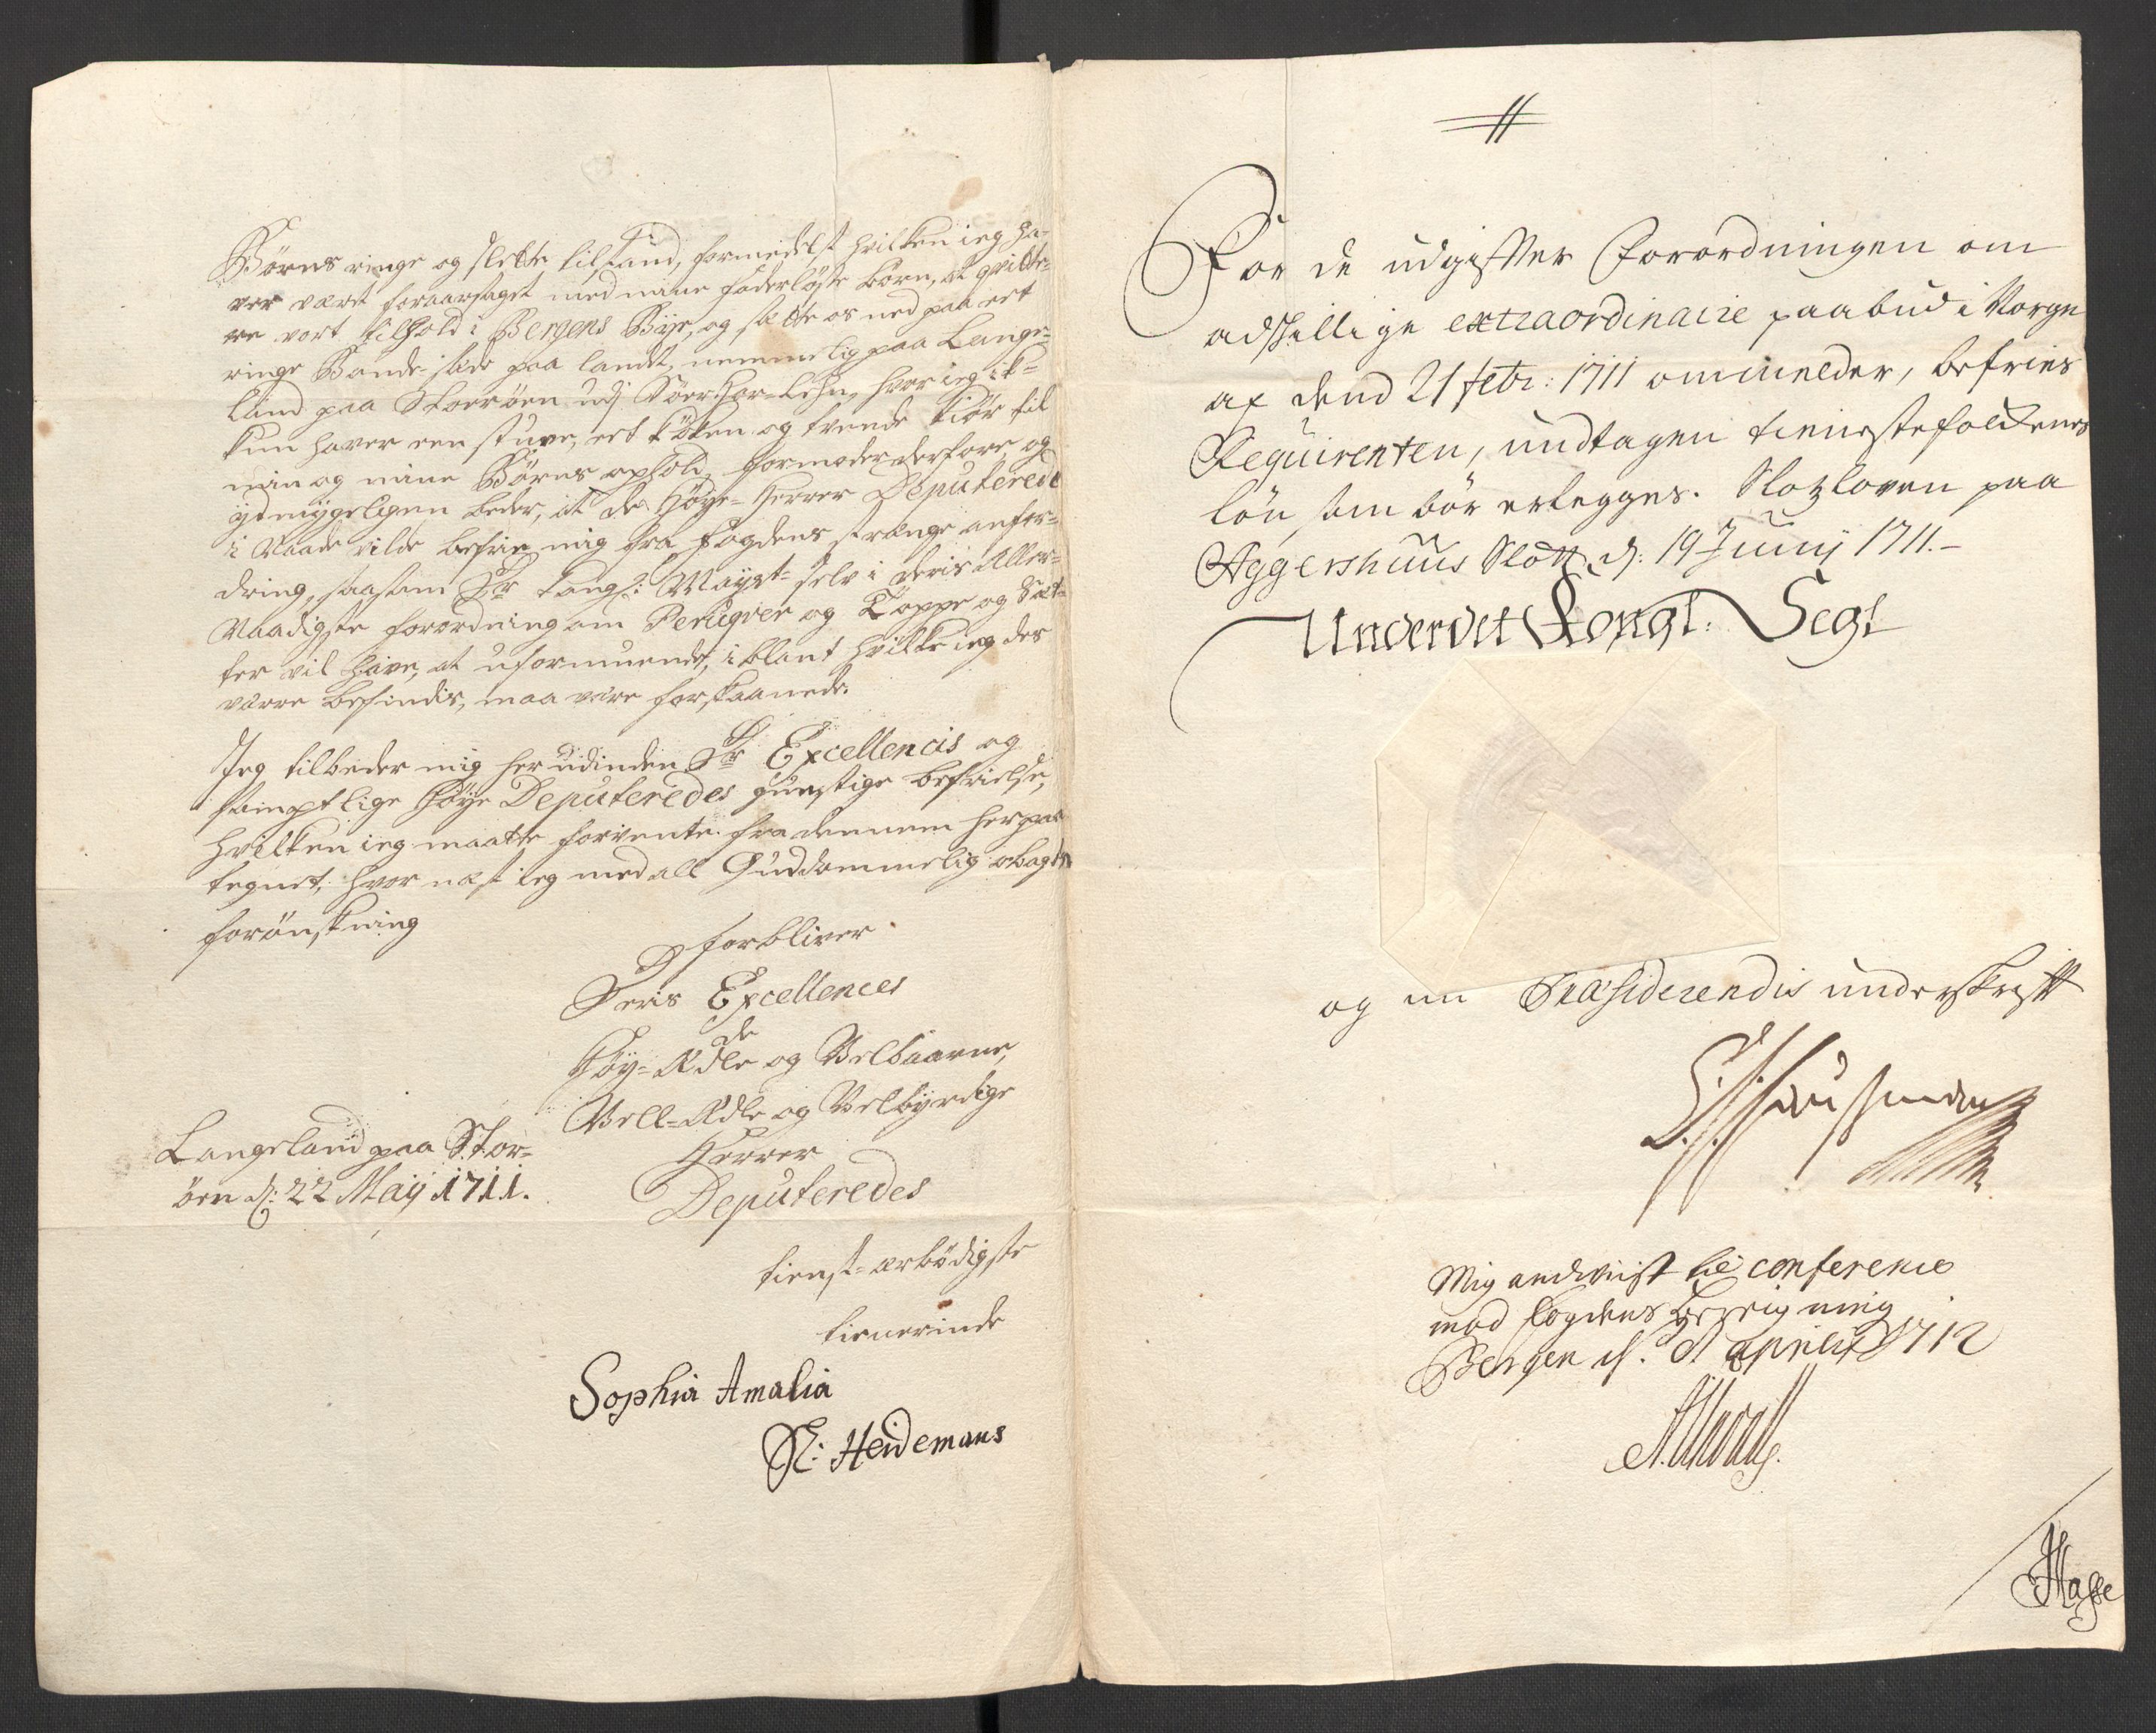 Børns ringe og slette tilstand, formedelst hvilken ieg ha-
ver vært foraarsaget med mine faderløse børn, at qvitte-
re vort tilhold i Bergens Bÿe, og sætte os ned paa ert
ringe Bonde-sæde paa landet, nemmelig paa Lange-
land paa Storøen udj Søerhor-Lehn, hvor ieg ik-
kun haver een stuve, ert køken og tvende kiør til
min og mine Børns ophold, formoder derfore, og
ydmygeligen beder, at de Høye-Herrer Deputerede
i Naade vilde befrie mig fra fogdens strænge anfor-
dring, saasom Hr Kongl: Mayst- selv i deris Aller-
Naadigste forordning om Peruqver og Toppe og Sæt-
ter vil have, at uformuende, iblant hvilke ieg des
værre befindis, maa være forskaanede.
Jeg tilbeder mig her udinden Hr Excellencis og
samptlige Høye Deputeredes gunstige befrielse,
hvilken ieg maatte forvente fra dennem herpaa
tegnet, hvor næst ieg med all Guddommelig obagts
forønskning
forbliver
Deris Excellences
de
Høy-Ædle og Velbaarne,
Vell-Ædle og Velbyrdige
Herrer
Deputeredes
Langeland paa Stor-
øen d: 22 Maÿ 1711.
tienst-ærbødigste
tienerinde
Sophia Amalia
Sl: Heidemans
For de udgiffter Forordningen om
adskillige extraordinaire paabud i Norge
af dend 21 febr: 1711 ommelder, befries
Requirenten, undtagen tienistefolckenes
løn som bør erlegges. Slotzloven paa
Aggershuus Slott d: 19 Junij 1711.-
Under det Kongl: Segl
og nu Præsiderendis underskrifft
Mig andviist til conference
mod fogdens
Bergen d. april 1712